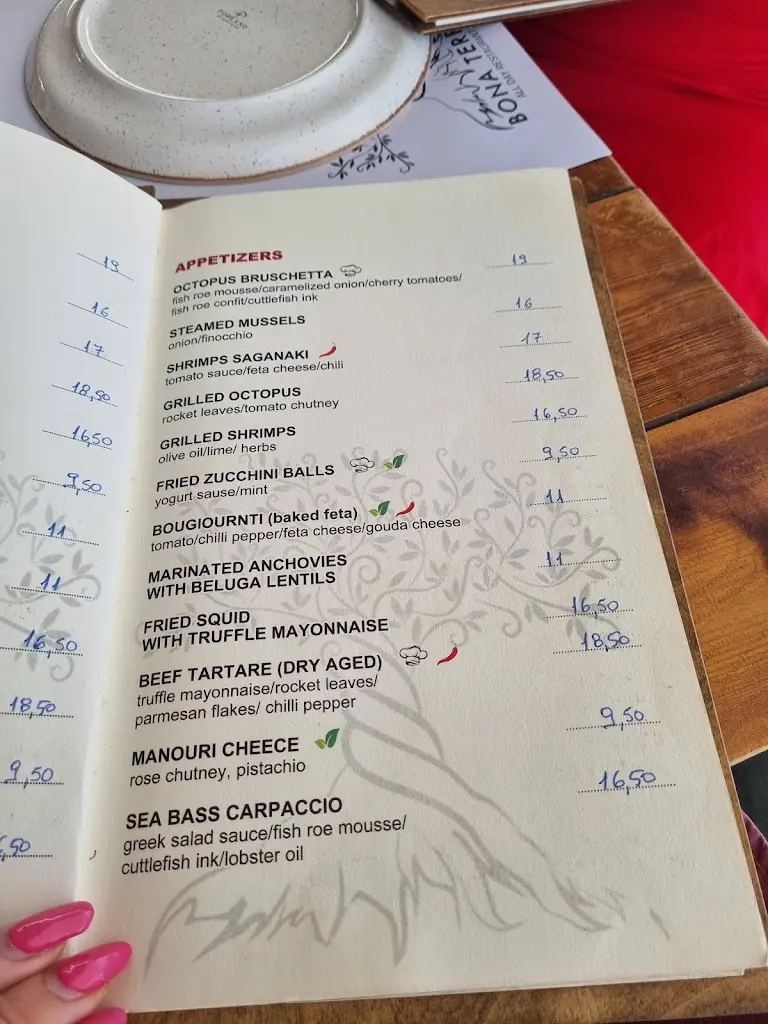 BONA TERR
ALL DAY RESTAURANT
19
16
17
18,50
16,50
9,50
11
11
16,50
18,50
9,50
6,50
APPETIZERS
OCTOPUS BRUSCHETTA 19
fish roe mousse/caramelized onion/cherry tomatoes/
fish roe confit/cuttlefish ink
STEAMED MUSSELS 16
onion/finocchio
SHRIMPS SAGANAKI 17
tomato sauce/feta cheese/chili
GRILLED OCTOPUS 18,50
rocket leaves/tomato chutney
GRILLED SHRIMPS 16,50
olive oil/lime/ herbs
FRIED ZUCCHINI BALLS 9,50
yogurt sause/mint
BOUGIOURNTI (baked feta) 11
tomato/chilli pepper/feta cheese/gouda cheese
MARINATED ANCHOVIES 11
WITH BELUGA LENTILS
FRIED SQUID 16,50
WITH TRUFFLE MAYONNAISE
BEEF TARTARE (DRY AGED) 18,50
truffle mayonnaise/rocket leaves/
parmesan flakes/ chilli pepper
MANOURI CHEECE 9,50
rose chutney, pistachio
SEA BASS CARPACCIO 16,50
greek salad sauce/fish roe mousse/
cuttlefish ink/lobster oil